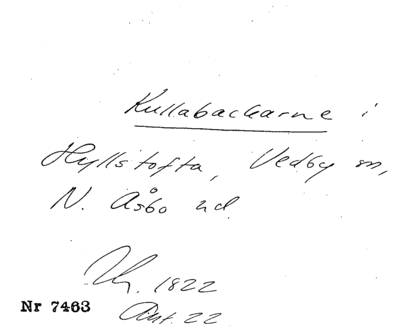 Kullabackarne i
Hyllstofta, Vedby sn,
N. Åsbo hd.
1822
Nr 7463
Ant. 22